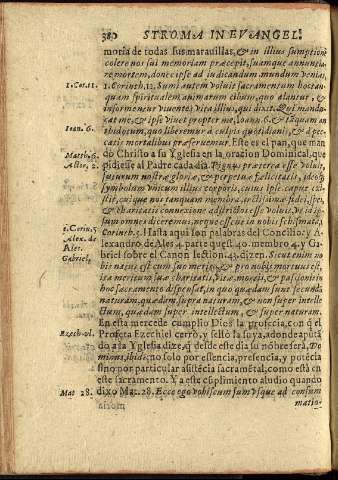 380 STROMA IN EVANGEL.
moria de todas sus marauillas, & in illius sumptione
colere nos sui memoriam præcepit, suamque annuncia-
re mortem, donec ipse ad iudicandum mundum veniat,
1. Cor. 11. 1. Corinth. 11. Sumi autem voluit sacramentum hoc tan-
quam spiritualem animarum cibum, quo alantur, &
confortentur viuentes vita illius, qui dixit. Qui mandu-
cat me, & ipse viuet propter me, Ioann. 6. & tãquam an-
Ioan. 6. tidotum, quo liberemur à culpis quotidianis, & à pec-
catis mortalibus præseruemur. Este es el pan, que man-
Matth. 6. do Christo a su Yglesia en la oracion Dominical, que
Actor. 2. pidiesse al Padre cada dia. Pignus præterea esse voluit,
futuræ nostræ gloriæ, & perpetuæ fælicitatis, ideoq́;
symbolum vnicum illius corporis, cuius ipse caput exi-
stit, cuique nos tanquam membra, arctissima fidei, spei,
& charitatis connexione adstrictos esse voluit, vt id ip-
sum omnes diceremus, neque essent in nobis schismata,
1. Corin. 1. Corinth. Hasta aqui son palabras del Concilio: y A-
Alex. de
Ales. lexandro de Ales 4. parte quest. 40. membro 4. y Ga-
Gabriel. briel sobre el Canon lection. 43. dizen. Sicut enim no
bis natus est cum suo merito, & pro nobis mortuus est,
ita meritum suæ charitatis, vitæ, mortis, & passionis in
hoc sacramento dispensat, in quo quædam sunt secundũ
naturam, quædam, supra naturam, & non super intelle
ctum, quædam super intellectum, & super naturam.
En esta merced cumplio Dios la profecia, con q̃ el
Ezech. vl. Profeta Ezechiel cerrò, y sellò la suya, adonde apũta
do a la Yglesia dize, q̃ desde este dia su nõbre serà, Do
minus, ibidẽ: no solo por essencia, presencia, y potẽcia
sino por particular asistẽcia sacramẽtal, como està en
este sacramento. Y a este cũplimiento aludio quando
Mat. 28. dixo Mat. 28. Ecce ego vobiscum sum vsque ad consum
matio-